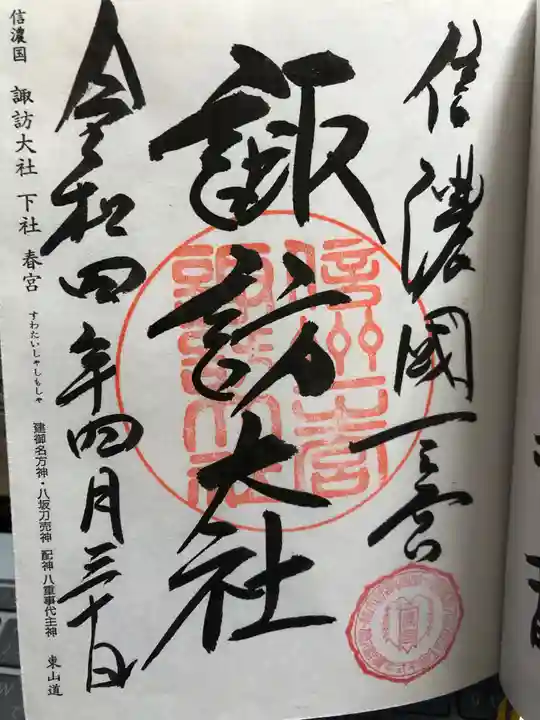 信濃國一之宮
諏訪大社
令和四年四月三十日
信濃国 諏訪大社 下社 春宮 すわたいしゃしもしゃ 建御名方神・八坂刀売神 配神 八重事代主神 東山道